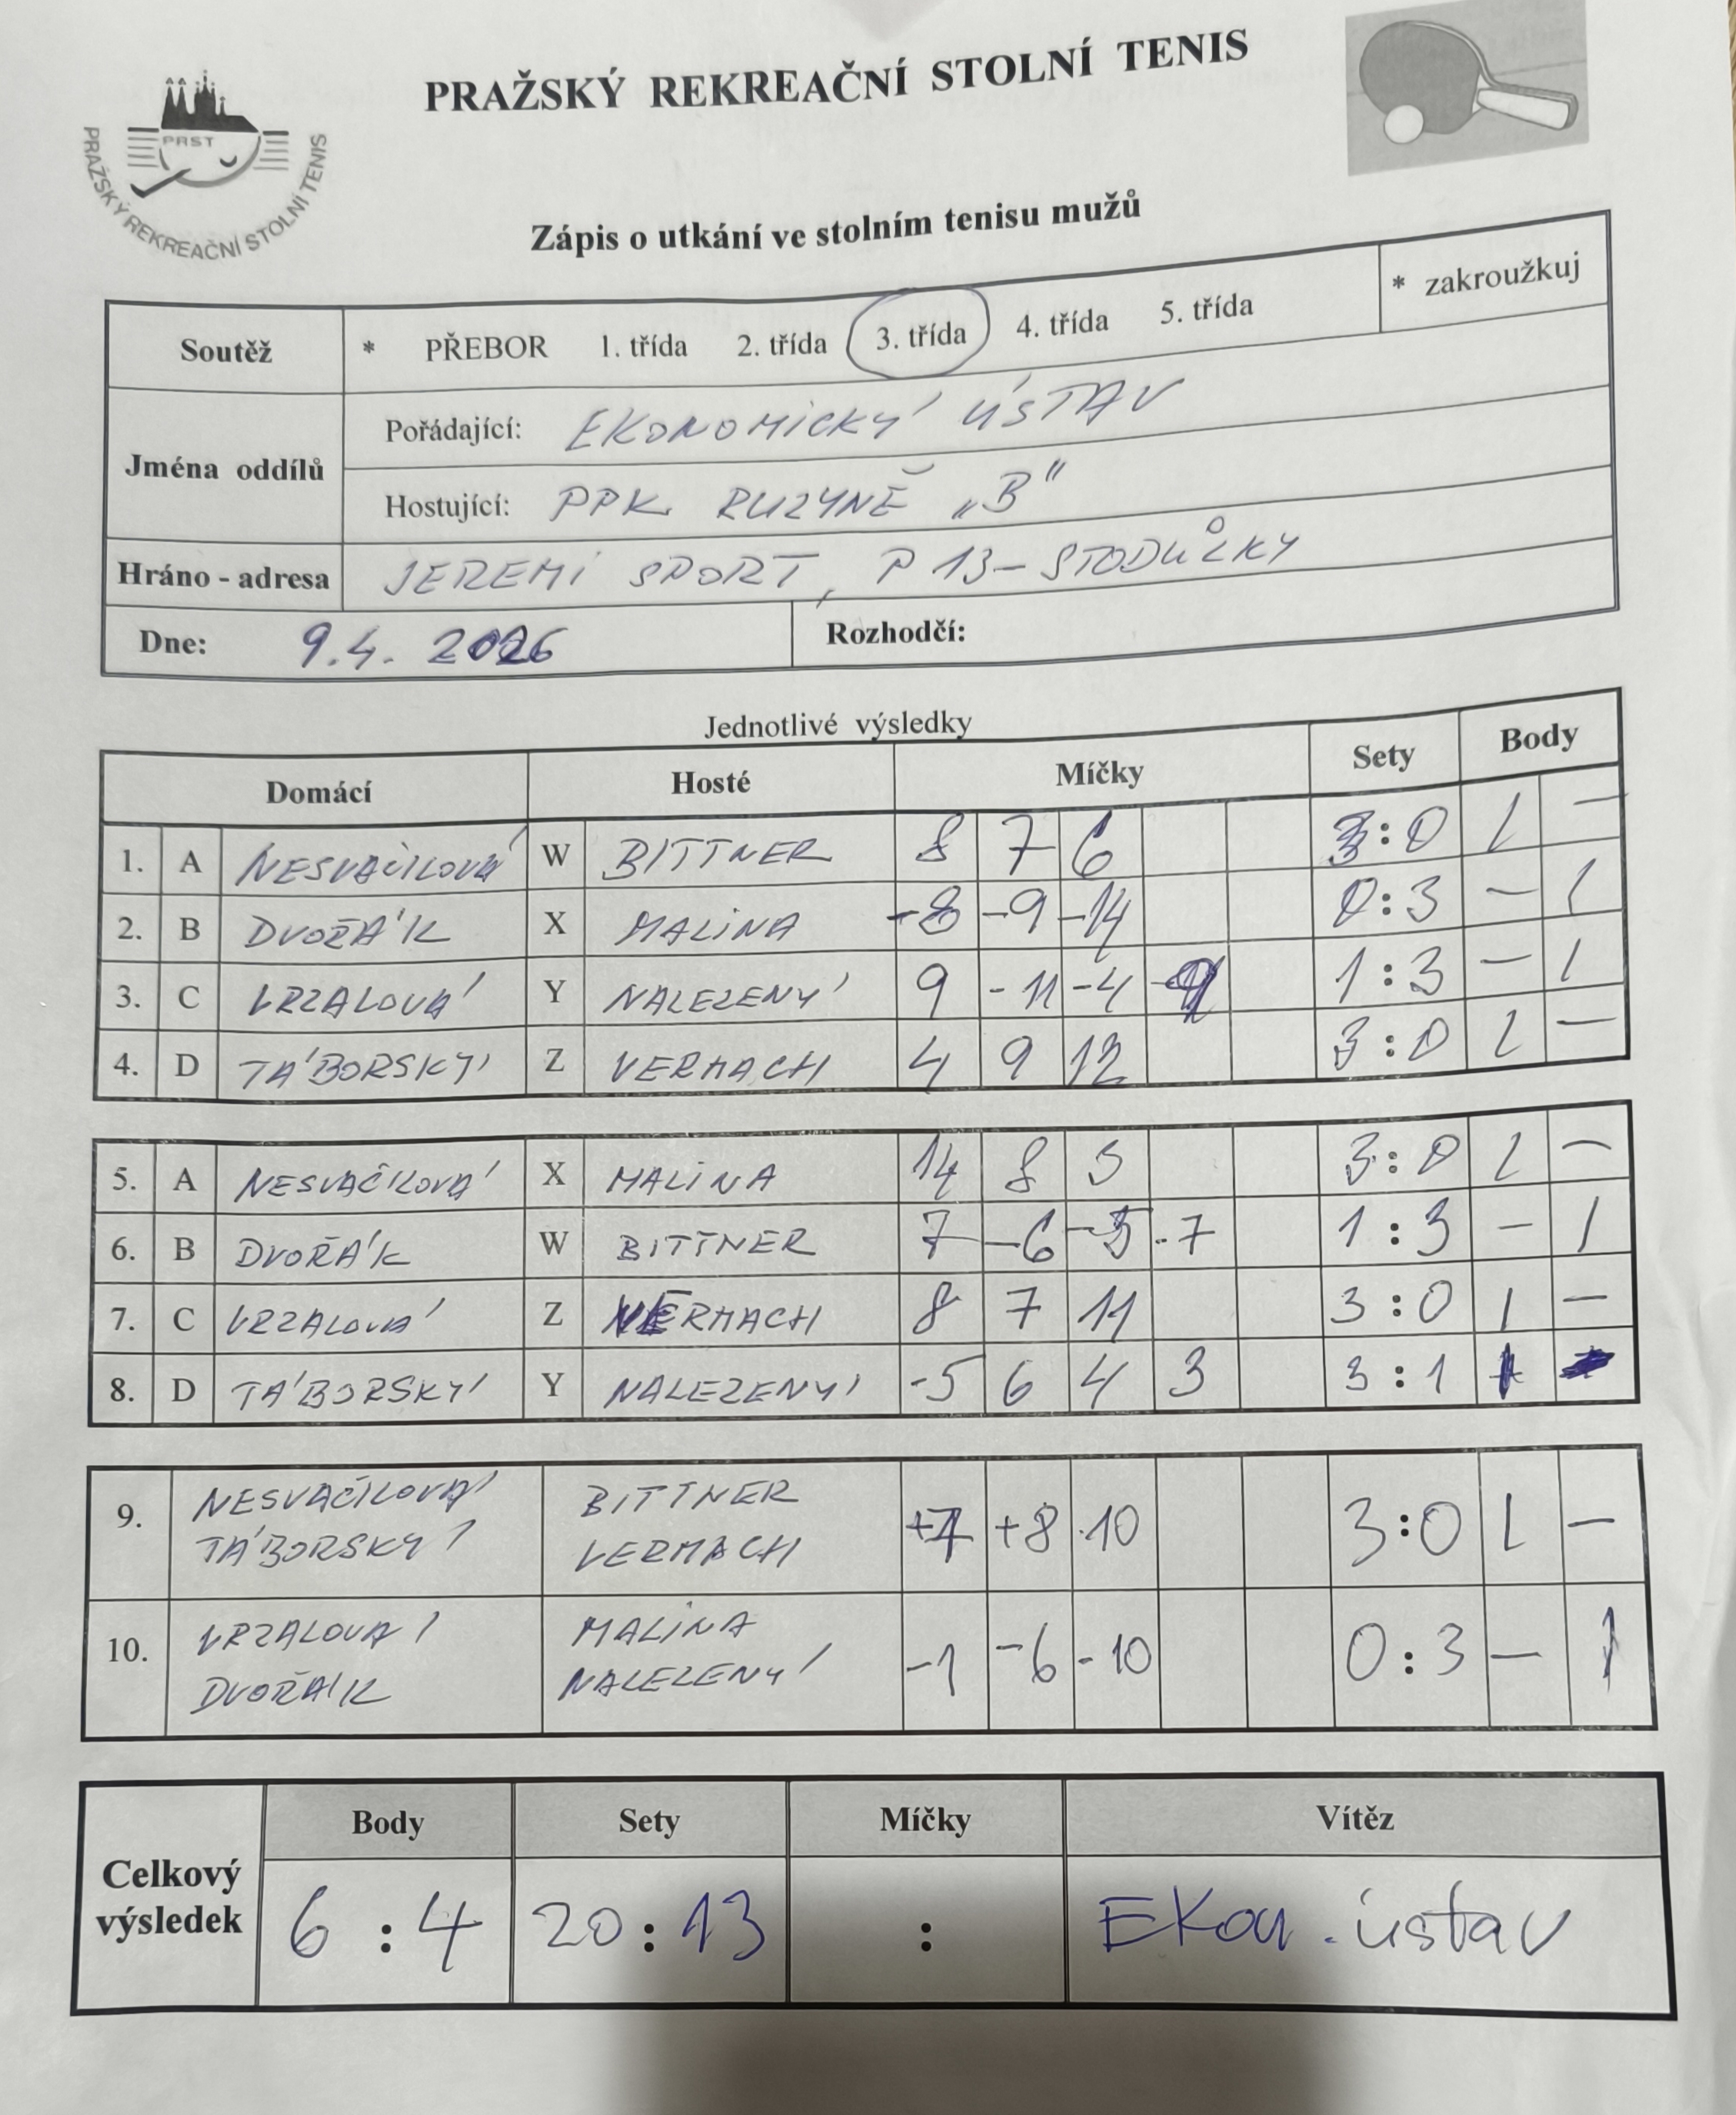 PRAŽSKÝ REKREAČNÍ STOLNÍ TENIS
PRST
PRAŽSKÝ REKREAČNÍ STOLNÍ TENIS
Zápis o utkání ve stolním tenisu mužů
Soutěž * PŘEBOR 1. třída 2. třída 3. třída 4. třída 5. třída * zakroužkuj
Jména oddílů
Pořádající: EKONOMICKÝ ÚSTAV
Hostující: PPK RUZYNĚ „B"
Hráno - adresa JEREMI SPORT, P 13 - STODŮLKY
Dne: 9.4. 2026 Rozhodčí:
Jednotlivé výsledky
Domácí Hosté Míčky Sety Body
1. A NESVAČILOVÁ W BITTNER 8 7 6 3:0 1 -
2. B DVOŘÁK X MALINA -8 -9 -14 0:3 - 1
3. C VRZALOVÁ Y NALEZENÝ 9 -11 -4 1:3 - 1
4. D TÁBORSKÝ Z VERMACH 4 9 12 3:0 1 -
5. A NESVAČILOVÁ X MALINA 14 8 5 3:0 1 -
6. B DVOŘÁK W BITTNER 7 -6 -5 -7 1:3 - 1
7. C VRZALOVÁ Z VERMACH 8 7 11 3:0 1 -
8. D TÁBORSKÝ Y NALEZENÝ -5 6 4 3 3:1 1
9. NESVAČILOVÁ BITTNER +7 +8 10 3:0 1 -
TÁBORSKÝ VERMACH
10. VRZALOVÁ MALINA -1 -6 -10 0:3 - 1
DVOŘÁK NALEZENÝ
Celkový výsledek
Body Sety Míčky Vítěz
6:4 20:13 : Ekon. ústav